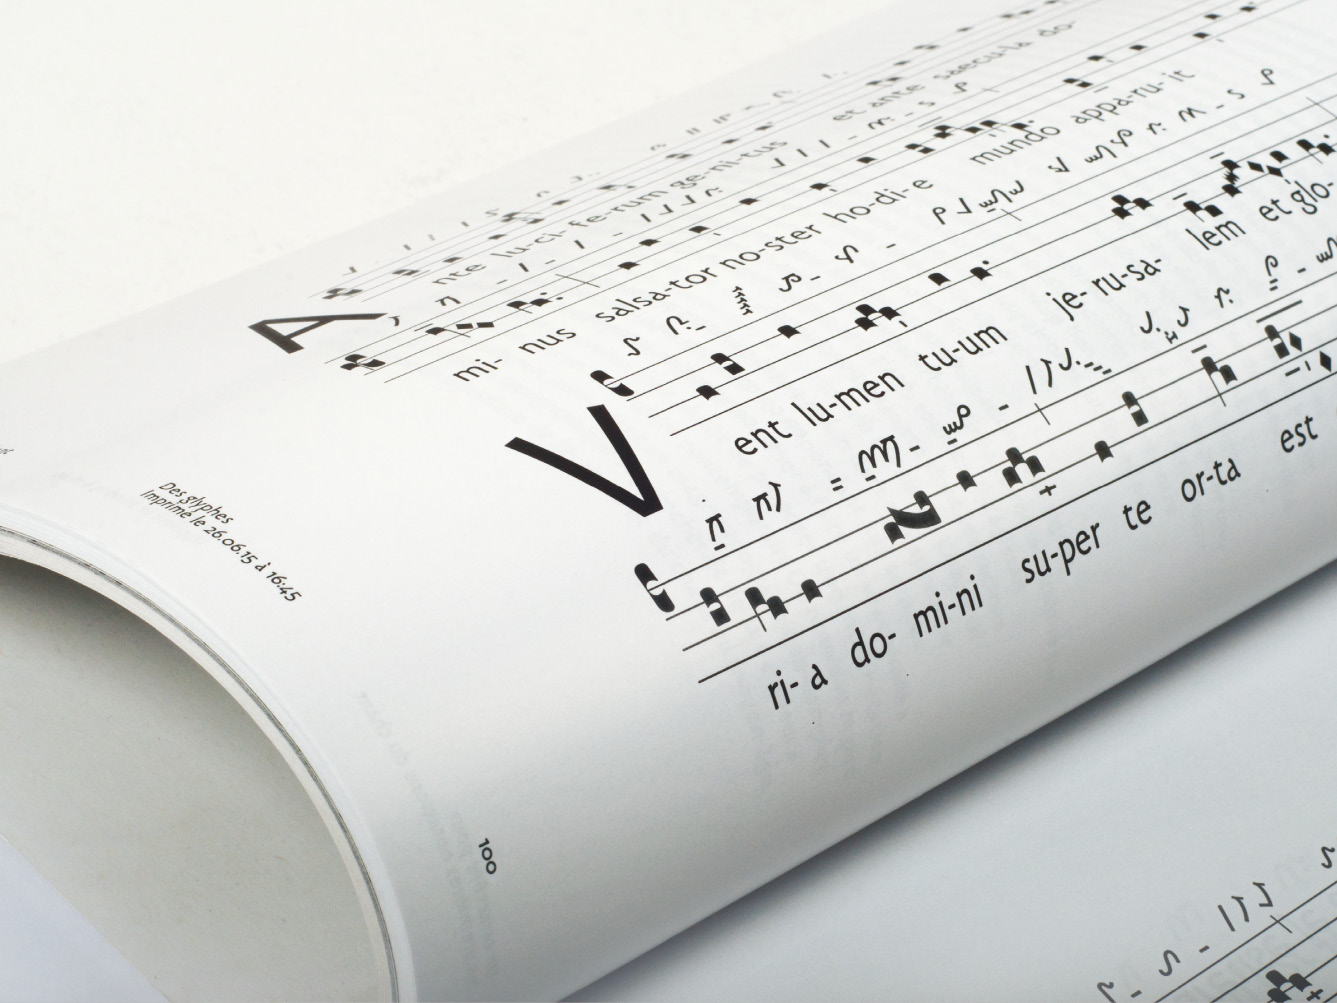 Ante lu-ci-fe-rum ge-ni-tus et ante saecu-la do-
mi- nus salsa-tor no-ster ho-di-e mundo appa-ru-it
Vent lu-men tu-um je- ru-sa- lem et glo-
ri- a do- mi-ni su-per te or-ta est
Des glyphes
Imprimé le 26.06.15 à 16:45
100